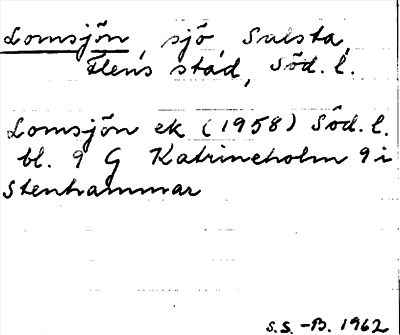 Lomsjön, sjö Salsta,
Flens stad, Söd. l.
Lomsjön ek (1958) Söd. l.
bl. 9 G Katrineholm 9 i
Stenhammar
S.S. -B. 1962